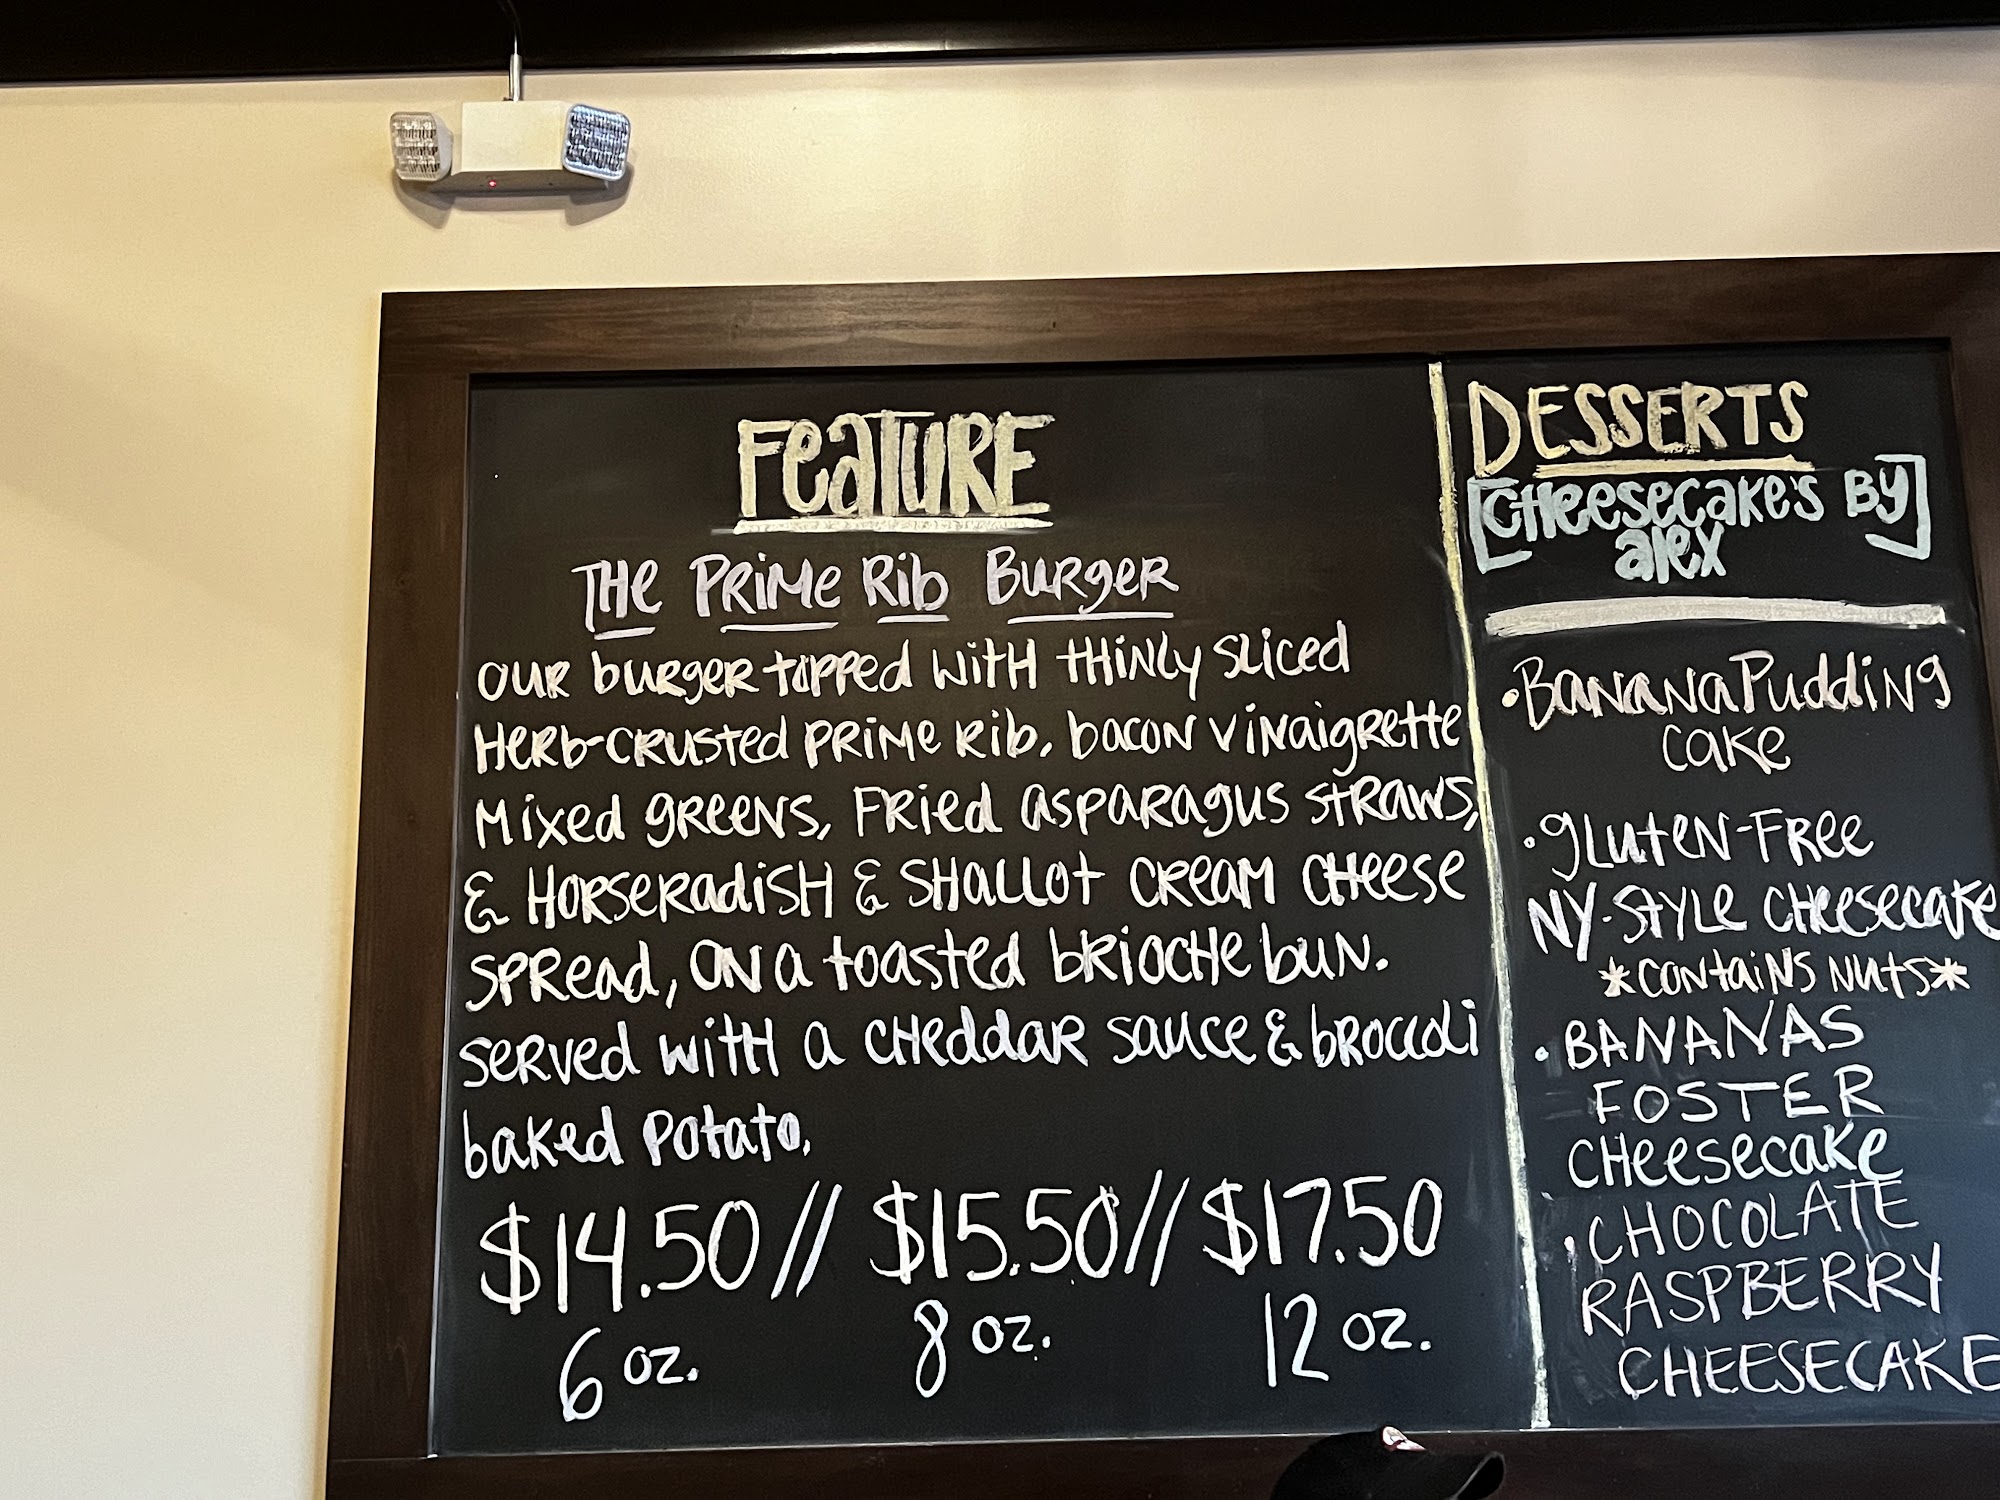 FeaTURE
THE PRiMe Rib BURgER
OUR buRgeR topped WitH tHiNly Sliced
HeRb-CRusted pRiMe Rib, bacoN ViNaigRette
Mixed gReeNs, FRied aspaRagus stRaws,
& HoRseRadisH & SHallot CReaM CHeese
SpRead, ON a toasted bRiocHe buN.
SeRved WitH a CHeddaR Sauce & bRoccoli
baked Potato.
$14.50 // $15.50 // $17.50
6 oz. 8 oz. 12 oz.
DESSERTS
[CHeesecake's By
alex]
•BaNaNa PuddiNg
Cake
•gluteN-FRee
NY-STYLE CHeesecake
*CoNtaiNs Nuts*
•BANANAS
FOSTER
CHeesecake
•CHOCOLATE
RASPBERRY
CHEESECAKE